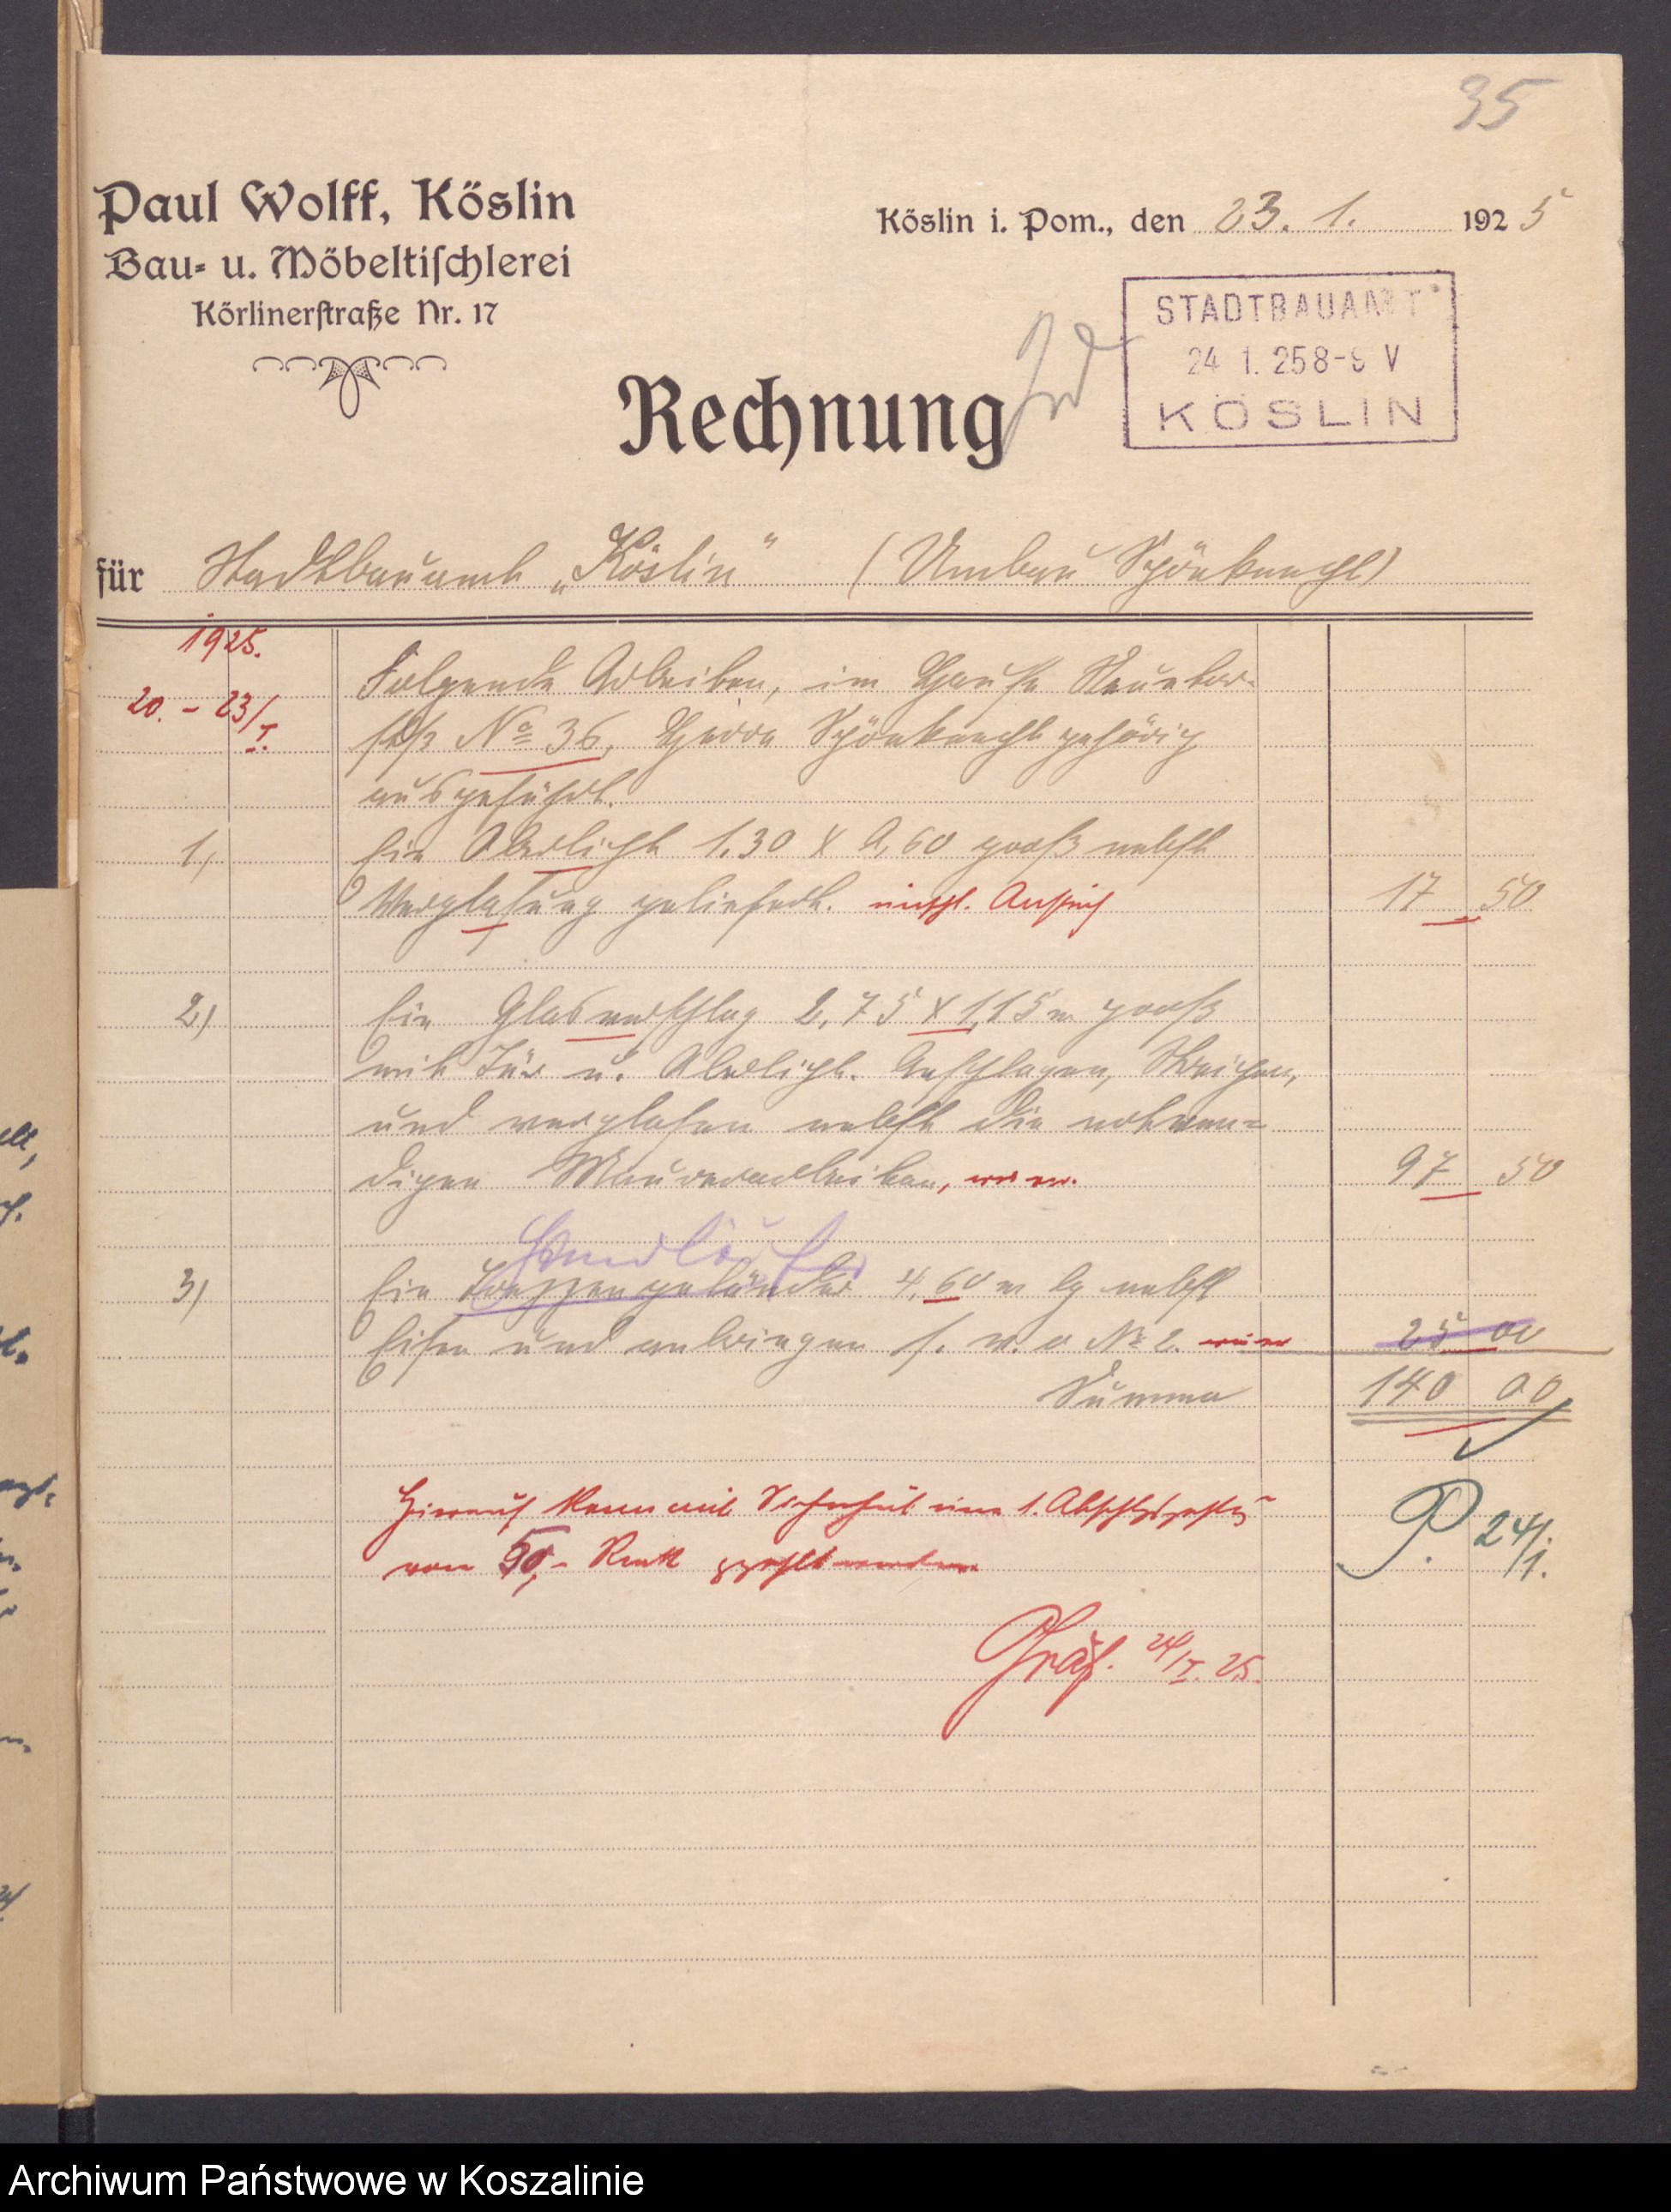 35
Paul Wolff, Köslin
Bau- u. Möbeltischlerei
Körlinerstraße Nr. 17
Köslin i. Pom., den 23. 1. 1925
STADTBAUAMT
24 1. 25 8-9 V
KÖSLIN
Rechnung
für Stadtbauamt „Köslin" (Umbau Schönknecht)
1925.
20. - 23/I.
Folgende Arbeiten, im Hause Neutor-
stß No 36, Herrn Schönknecht gehörig
ausgeführt.
1) Ein Oberlicht 1.30 X 0,60 groß nebst
Verglasung geliefert. 17 50
2) Ein Glasverschlag 2,75 X 1,15 m groß
mit Tür u. Oberlicht. Anschlagen, Streichen,
und verglasen nebst die notwen=
digen Maurerarbeiten, 97 50
Handläufer
3) Ein Treppengeländer 4,60 m lg nebst
Eisen und anbringen s. w. o No 2. 25 00
Summa 140 00
Hierauf kann mit Sicherheit eine 1. Abschlagszahlg
von 50,- Mark gezahlt werden.
P. 24/1.
Gräf. 24/I. 25.
Archiwum Państwowe w Koszalinie